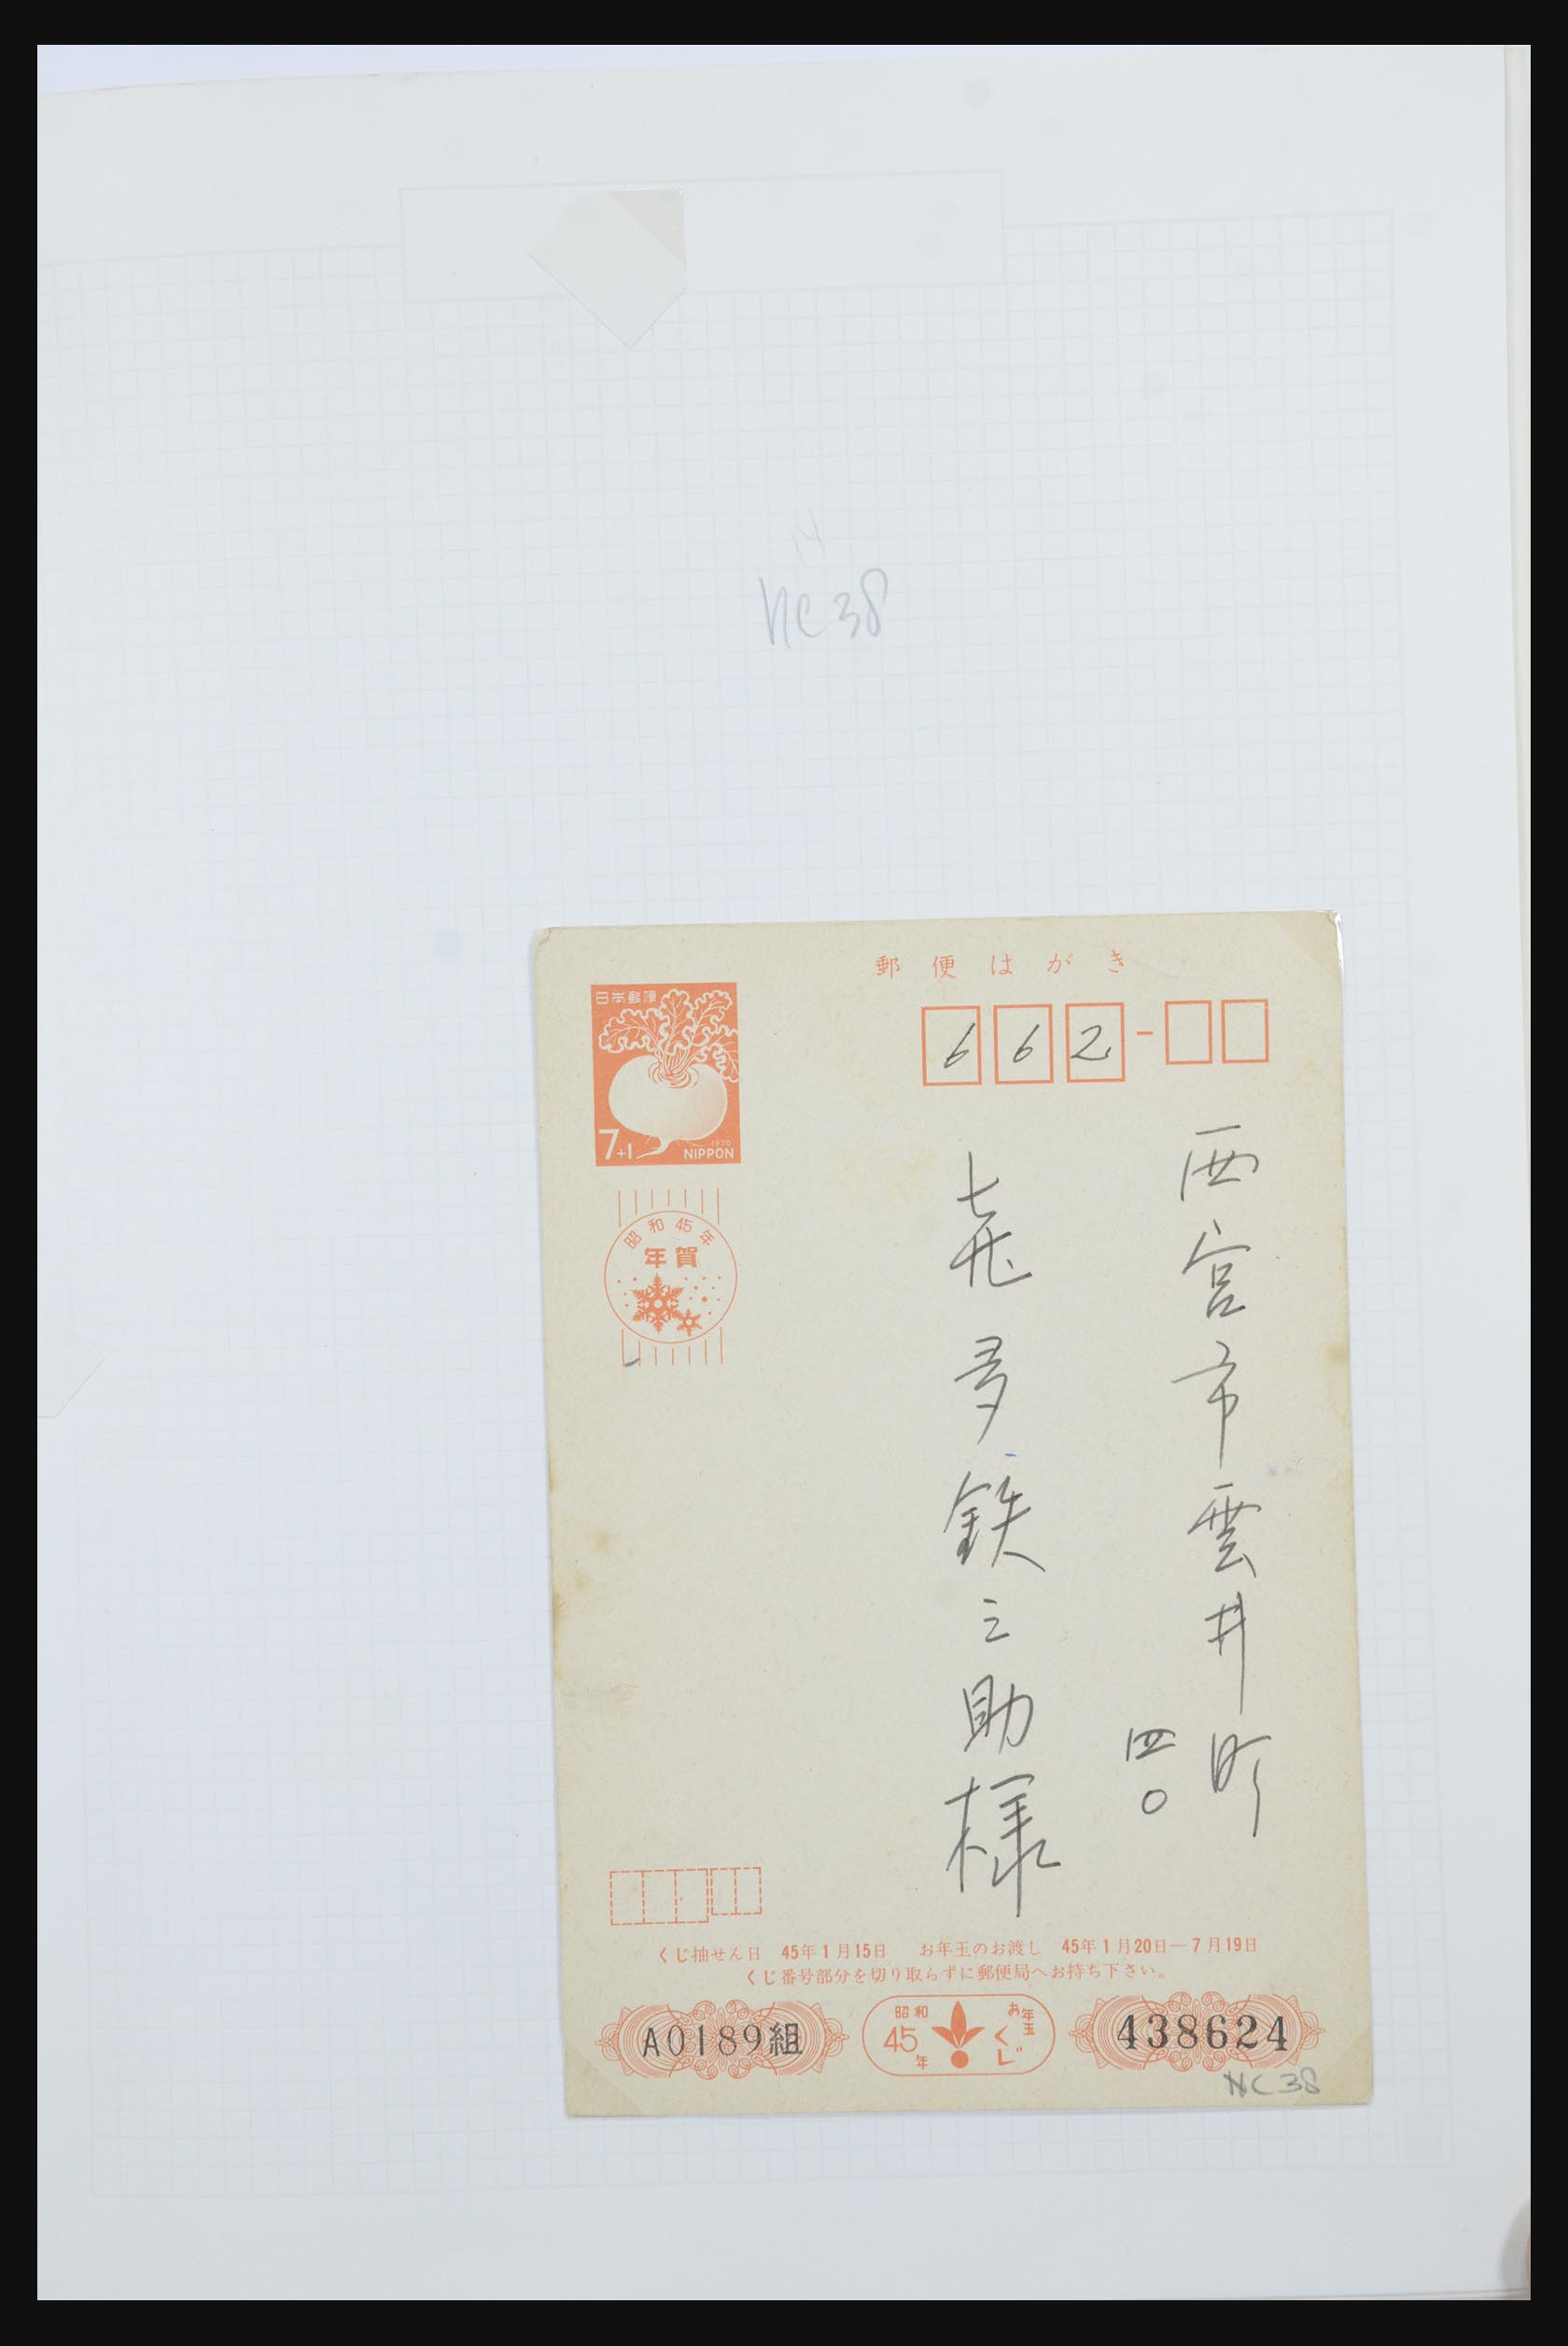 NC38
郵便はがき
日本郵便
7+1
1970
NIPPON
662-
昭和45年
年賀
西宮市雲井町
四〇
喜多鉄之助様
くじ抽せん日 45年1月15日 お年玉のお渡し 45年1月20日―7月19日
くじ番号部分を切り取らずに郵便局へお持ち下さい。
A0189組
昭和45年
お年玉くじ
438624
NC38